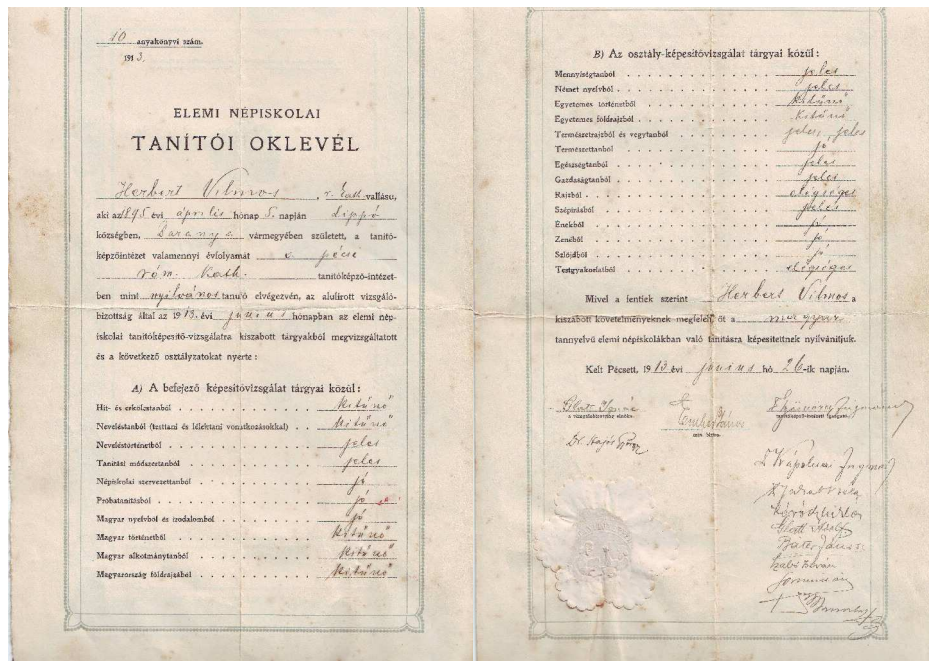 10 anyakönyvi szám.
1913.
ELEMI NÉPISKOLAI
TANÍTÓI OKLEVÉL
Herbert Vilmos, r. kath. vallásu,
aki az 1895 évi április hónap 5. napján Lippó
községben, Baranya vármegyében született, a tanító-
képzőintézet valamennyi évfolyamát a pécsi
róm. kath. tanítóképző-intézet-
ben mint nyilvános tanuló elvégezvén, az alulirott vizsgáló-
bizottság által az 1913. évi junius hónapban az elemi nép-
iskolai tanítóképesítő-vizsgálatra kiszabott tárgyakból megvizsgáltatott
és a következő osztályzatokat nyerte:
A) A befejező képesítővizsgálat tárgyai közül:
Hit- és erkölcstanból kitünő
Neveléstanból (testtani és lélektani vonatkozásokkal) kitünő
Neveléstörténetből jeles
Tanítási módszertanból jeles
Népiskolai szervezettanból jó
Próbatanításból jó
Magyar nyelvből és irodalomból jó
Magyar történetből kitünő
Magyar alkotmánytanból kitünő
Magyarország földrajzából kitünő
B) Az osztály-képesítővizsgálat tárgyai közül:
Mennyiségtanból jeles
Német nyelvből jeles
Egyetemes történetből kitünő
Egyetemes földrajzból kitünő
Természetrajzból és vegytanból jeles, jeles
Természettanból jó
Egészségtanból jeles
Gazdaságtanból jeles
Rajzból elégséges
Szépírásból jeles
Énekből jó
Zenéből jó
Szlöjdből jó
Testgyakorlatból elégséges
Mivel a fentiek szerint Herbert Vilmos a
kiszabott követelményeknek megfelelt, őt a magyar
tannyelvü elemi népiskolákban való tanításra képesítettnek nyilvánítjuk.
Kelt Pécsett, 1913 évi junius hó 26-ik napján.
a vizsgálóbizottság elnöke.
Ember János
Dr. Hajós
Bater János
Szabó István